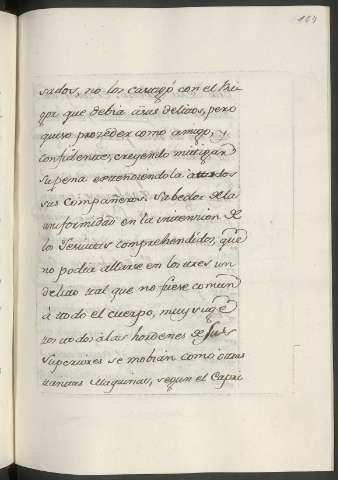 sados, no los castigó con el Ri-
gor que debia á sus delitos, pero
quiso prozeder como amigo, y
confidente, creyendo mitigar
su pena extendiendola a todos
sus compañeros. Sabedor de la
uniformidad en la intension de
los Jesuitas comprehendidos, que
no podia allarse en los tres un
delito tal que no fuese comun
à todo el cuerpo, muy suge
tos todos à las hordenes de sus
Superiores se mobian como otras
tantas Maquinas, segun el Capri